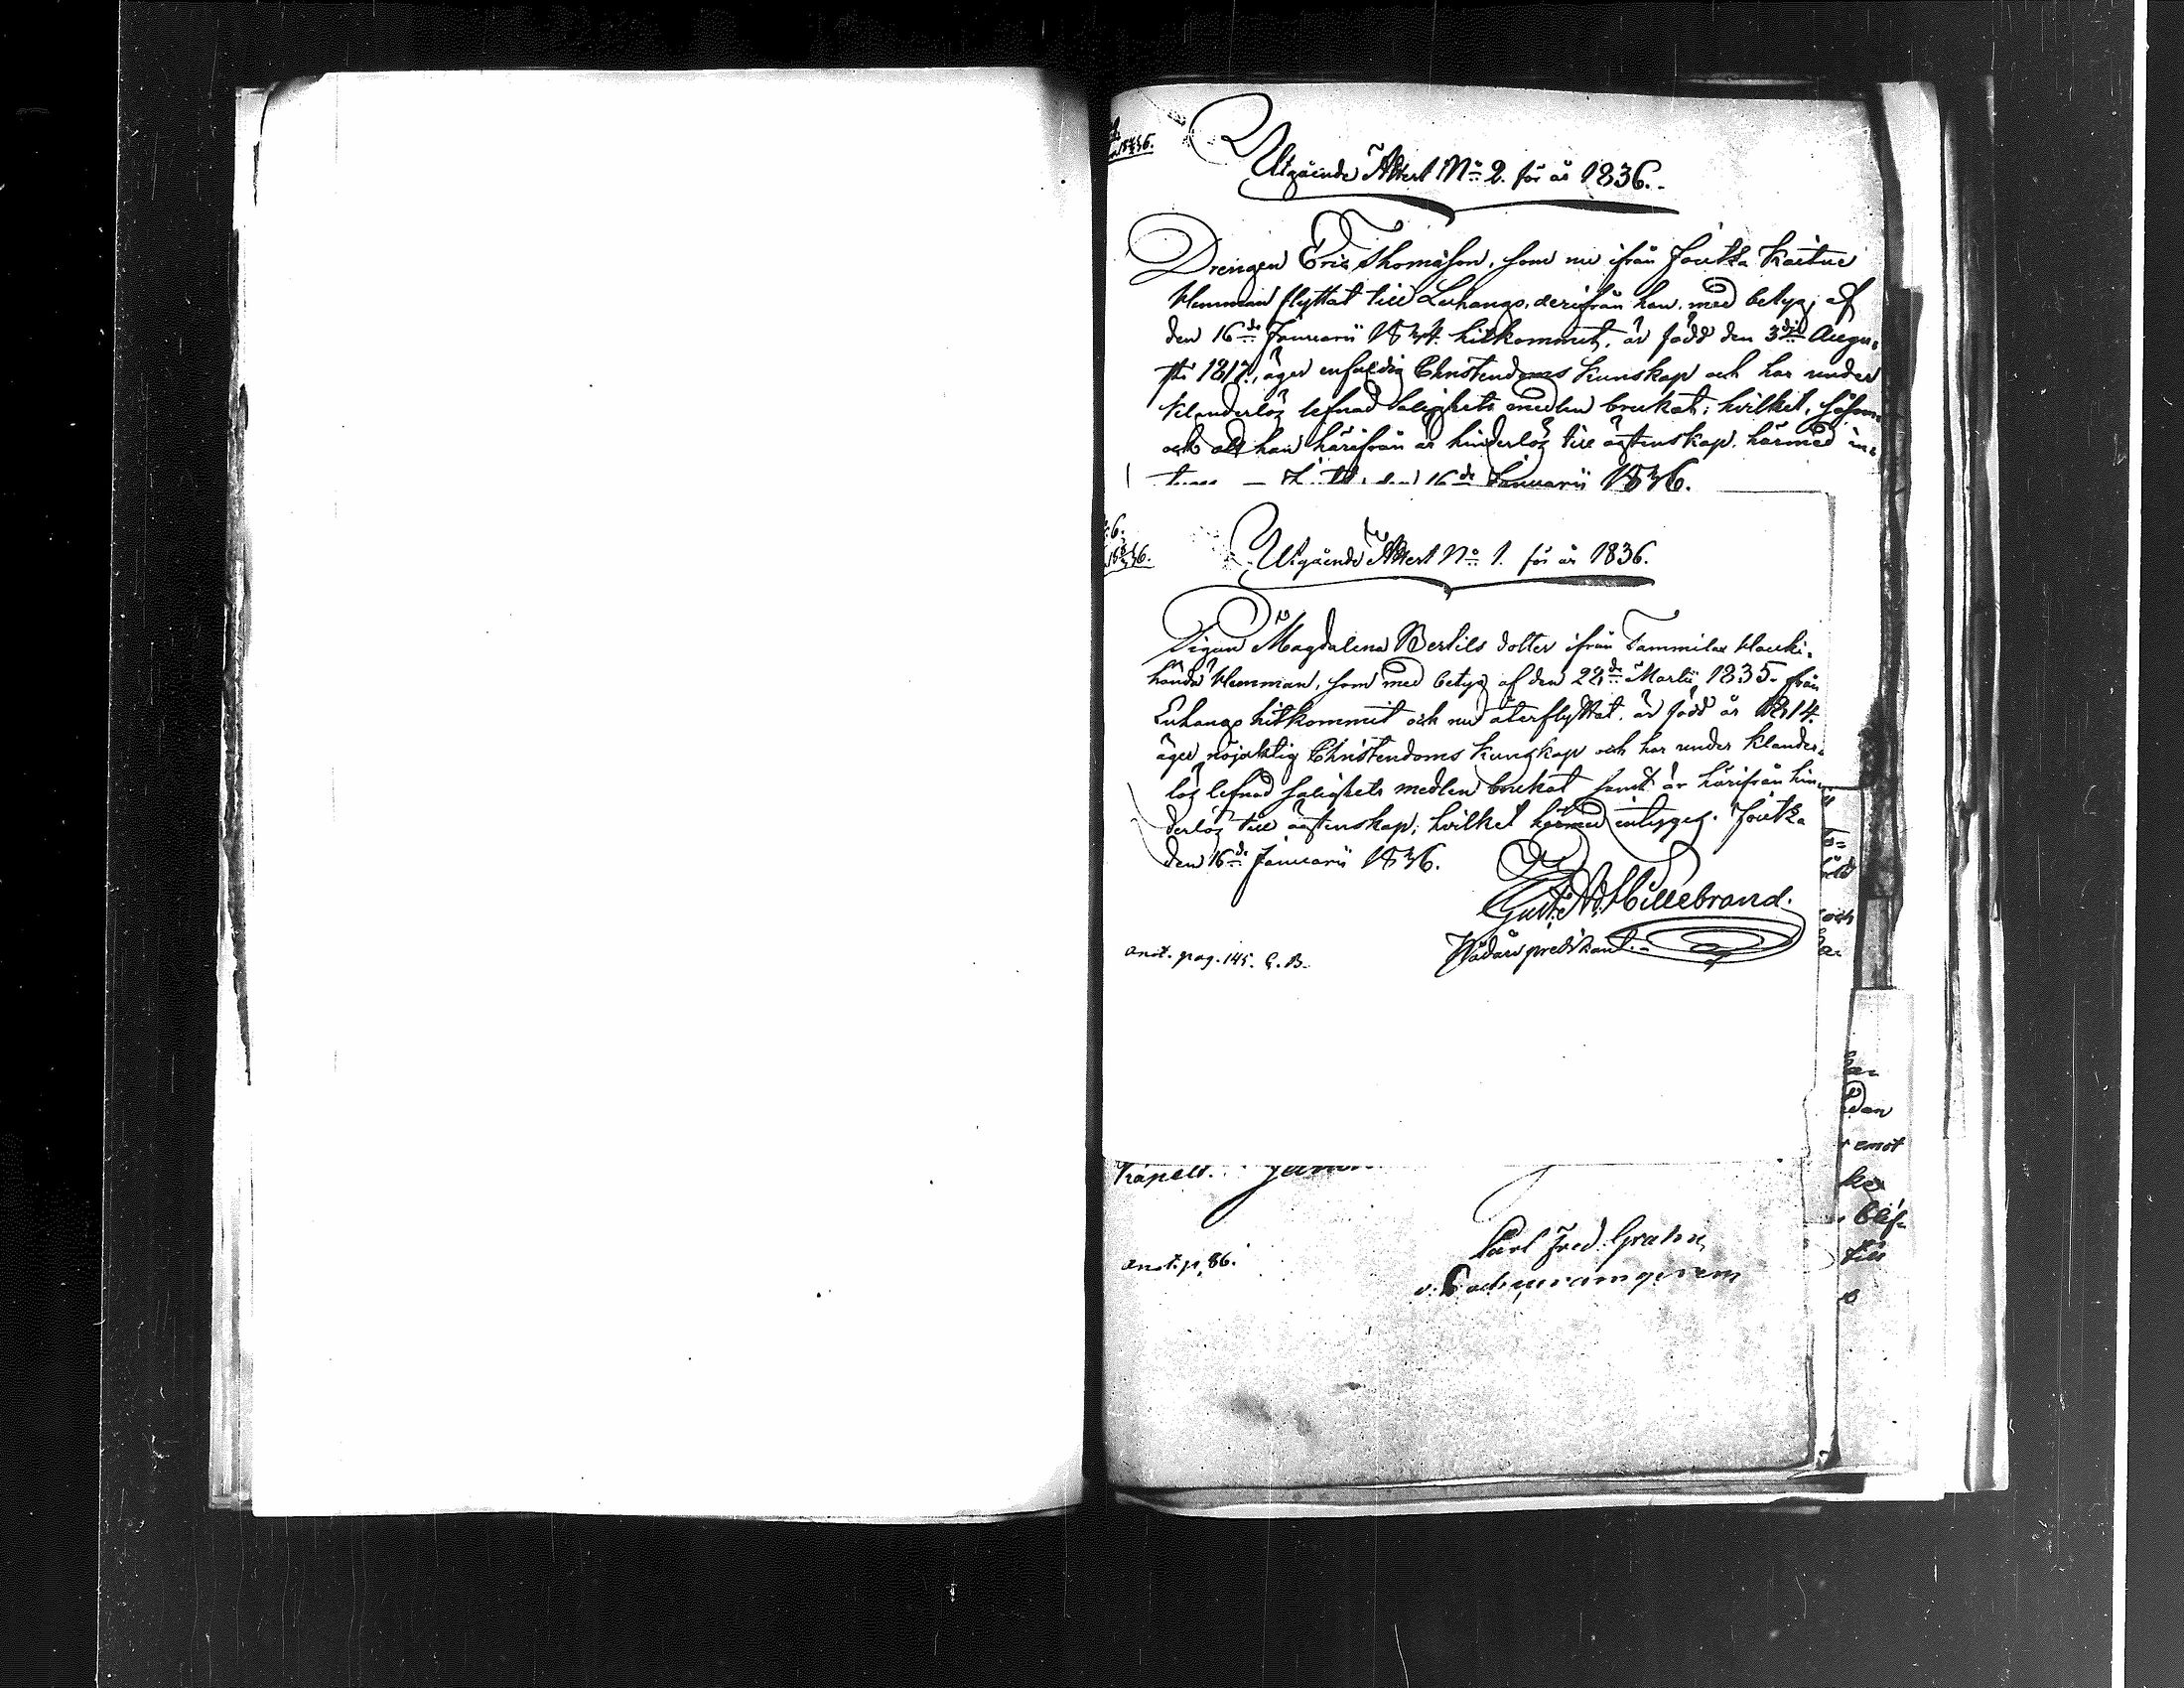 Utgående Attest No 2. för år 1836.
Drengen Eric Thomasson, som nu ifrån Joutza Kaitue
Hemman flyttat till Luhango, derifrån han, med betyg af
den 16de Januarii 1834. hitkommit, är född den 3die Augu-
sti 1817, äger enfaldig Christendoms kunskap och har under
klanderlös lefnad salighets medlen brukat; hvilket, såsom
och att han härifrån är hinderlös till ägtenskap, härmed in-
den 16de Januarii 1836.
Utgående Attest No 1. för år 1836.
Pigan Magdalena Bertils dotter ifrån Tammilax Hauki-
händä Hemman, som med betyg af den 22de Martii 1835 från
Luhango hitkommit och nu återflyttat, är född år 1814.
äger nöjaktig Christendoms kunskap och har under klander-
lös lefnad salighets medlen brukat samt är härifrån hin-
derlös till ägtenskap; hvilket härmed intygas. Joutza
den 16de Januarii 1836.
Gust. Ad. Hillebrand.
Sådan predikant.
anot. pag. 145. C. B.
Kapell.
Carl Fred. Grahn
anot. p. 86.
och
emot
till